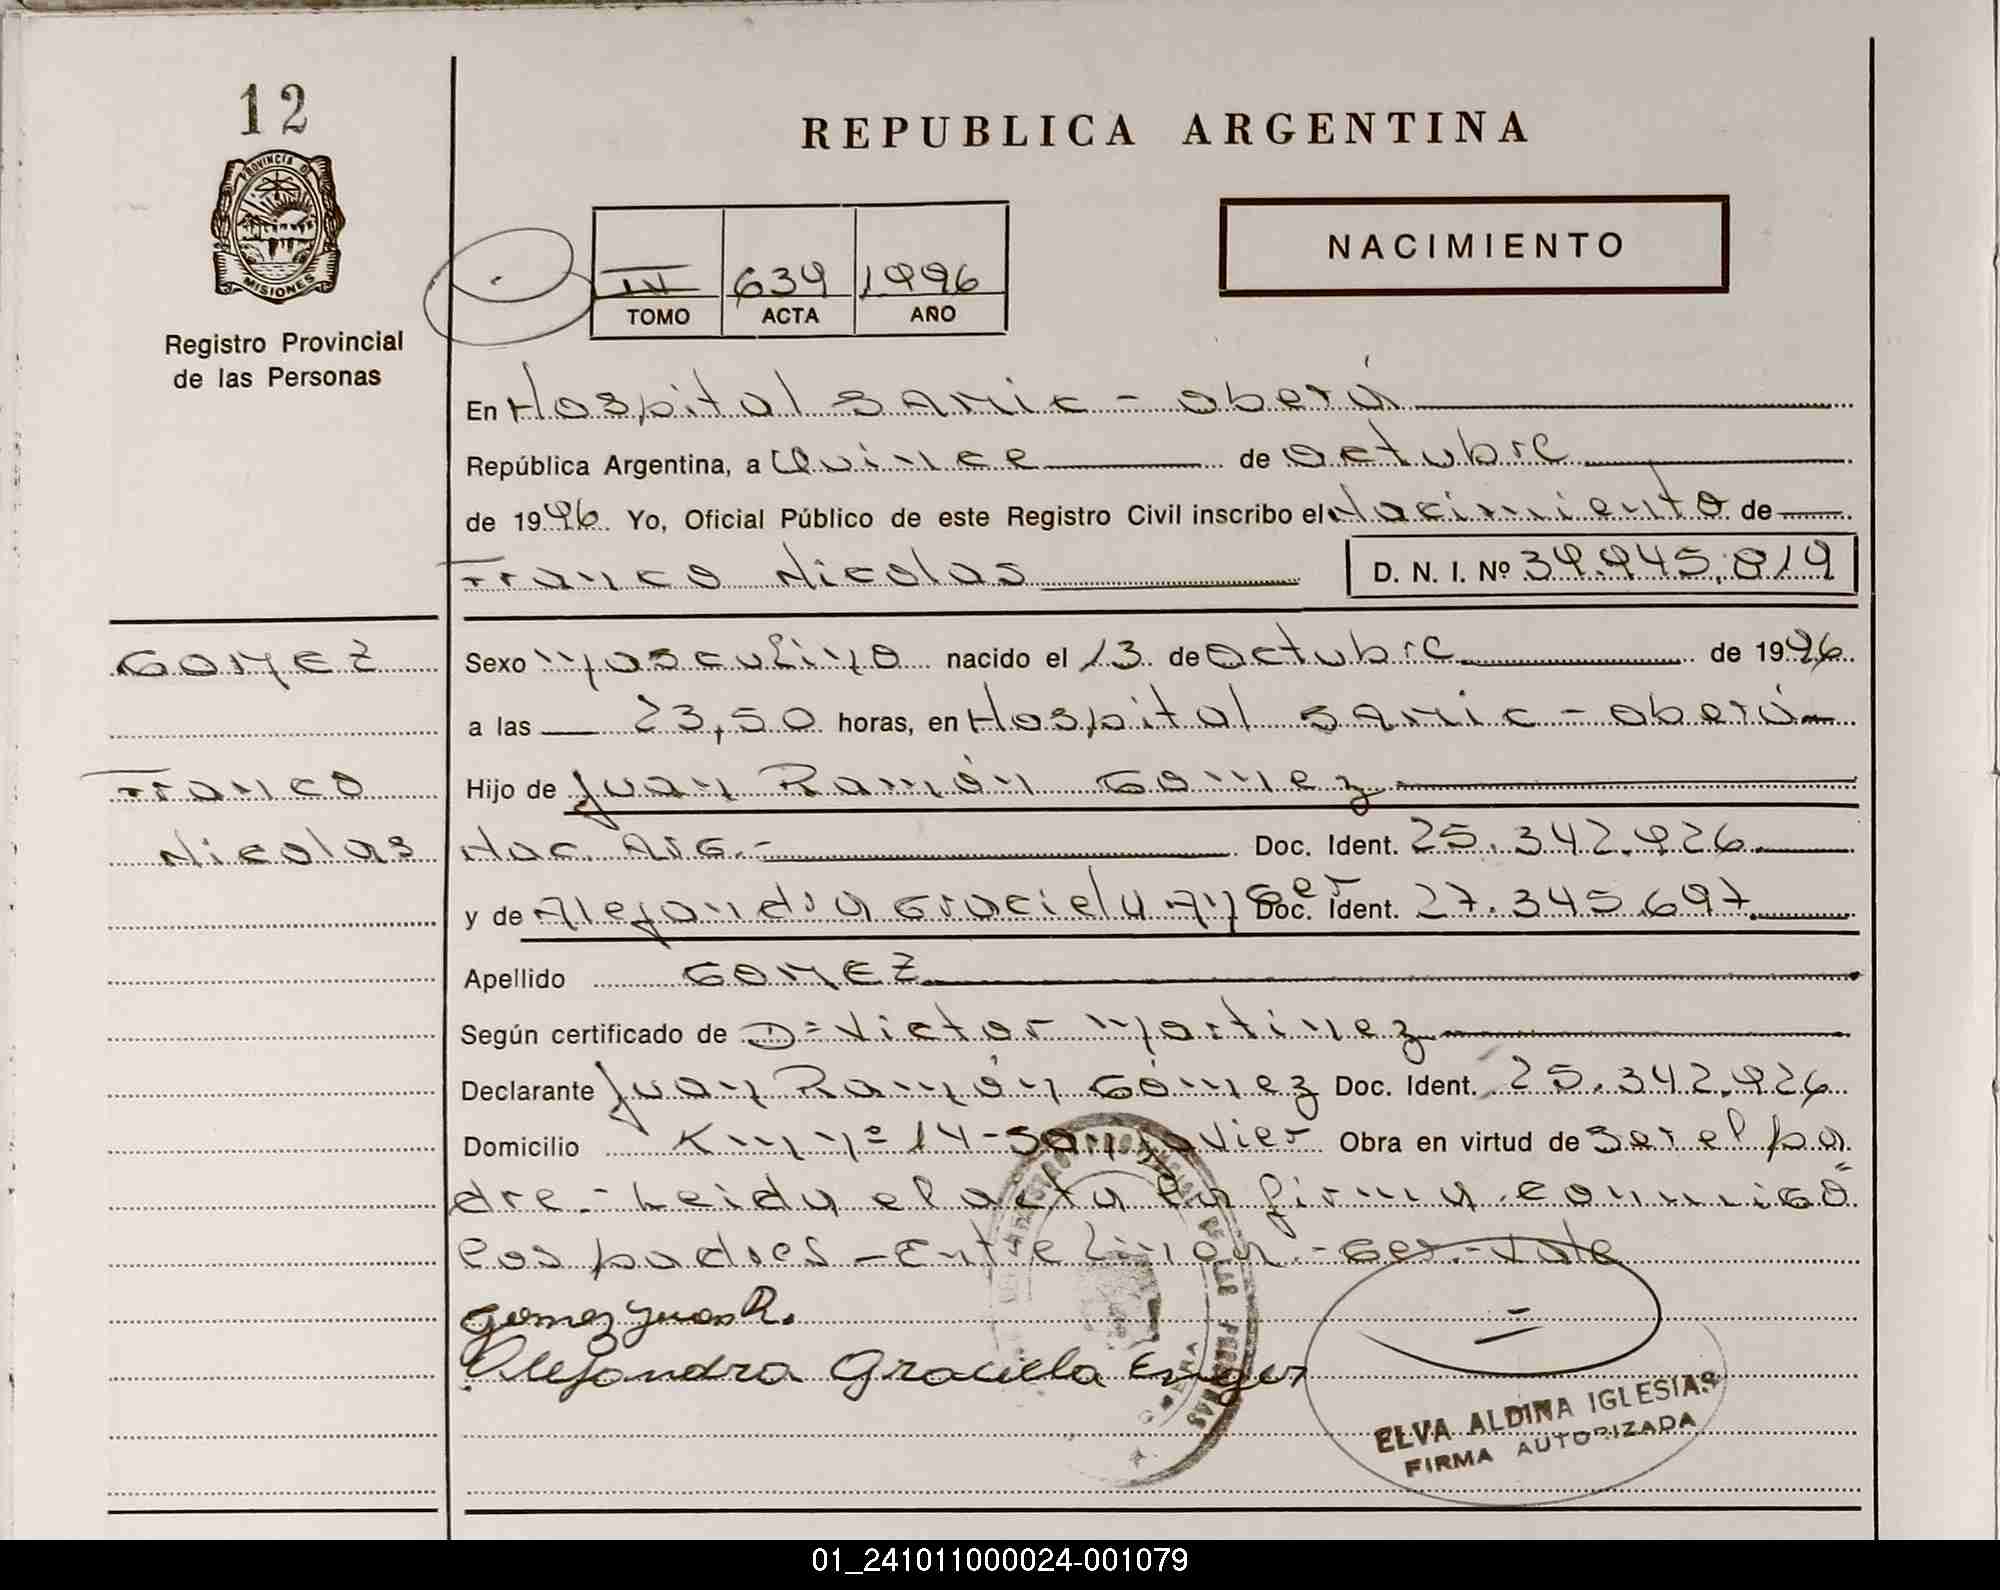 12
REPUBLICA ARGENTINA
PROVINCIA DE
MISIONES
NACIMIENTO
III 639 1996
TOMO ACTA AÑO
Registro Provincial
de las Personas
En Hospital SAMIC - Oberá
República Argentina, a Quince de Octubre
de 1996 Yo, Oficial Público de este Registro Civil inscribo el Nacimiento de
Franco Nicolas D. N. I. Nº 39.945.819
GOMEZ
Sexo Masculino nacido el 13 de Octubre de 1996
a las 23,50 horas, en Hospital SAMIC - Oberá
Franco
Hijo de Juan Ramón Gomez
Nicolas
Nac. Arg.- Doc. Ident. 25.342.926
y de Alejandra Graciela Doc. Ident. 27.345.697
Apellido GOMEZ
Según certificado de D= Victor Martinez
Declarante Juan Ramón Gómez Doc. Ident. 25.342.926
Domicilio Km nº 14 - San Javier Obra en virtud de ser el pa
dre.- Leida el acta la firma conmigo
los padres - Entelinon.- Ger.- Vale
Gomez Juan R.
Alejandra Graciela Enger
ELVA ALDINA IGLESIAS
FIRMA AUTORIZADA
01_241011000024-001079